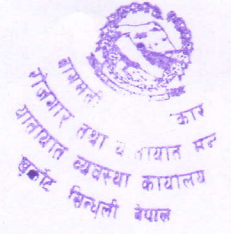 बागमती कार
रोजगार तथा यातायात मन
यातायात व्यवस्था कार्यालय
खुर्कोट सिन्धुली नेपाल